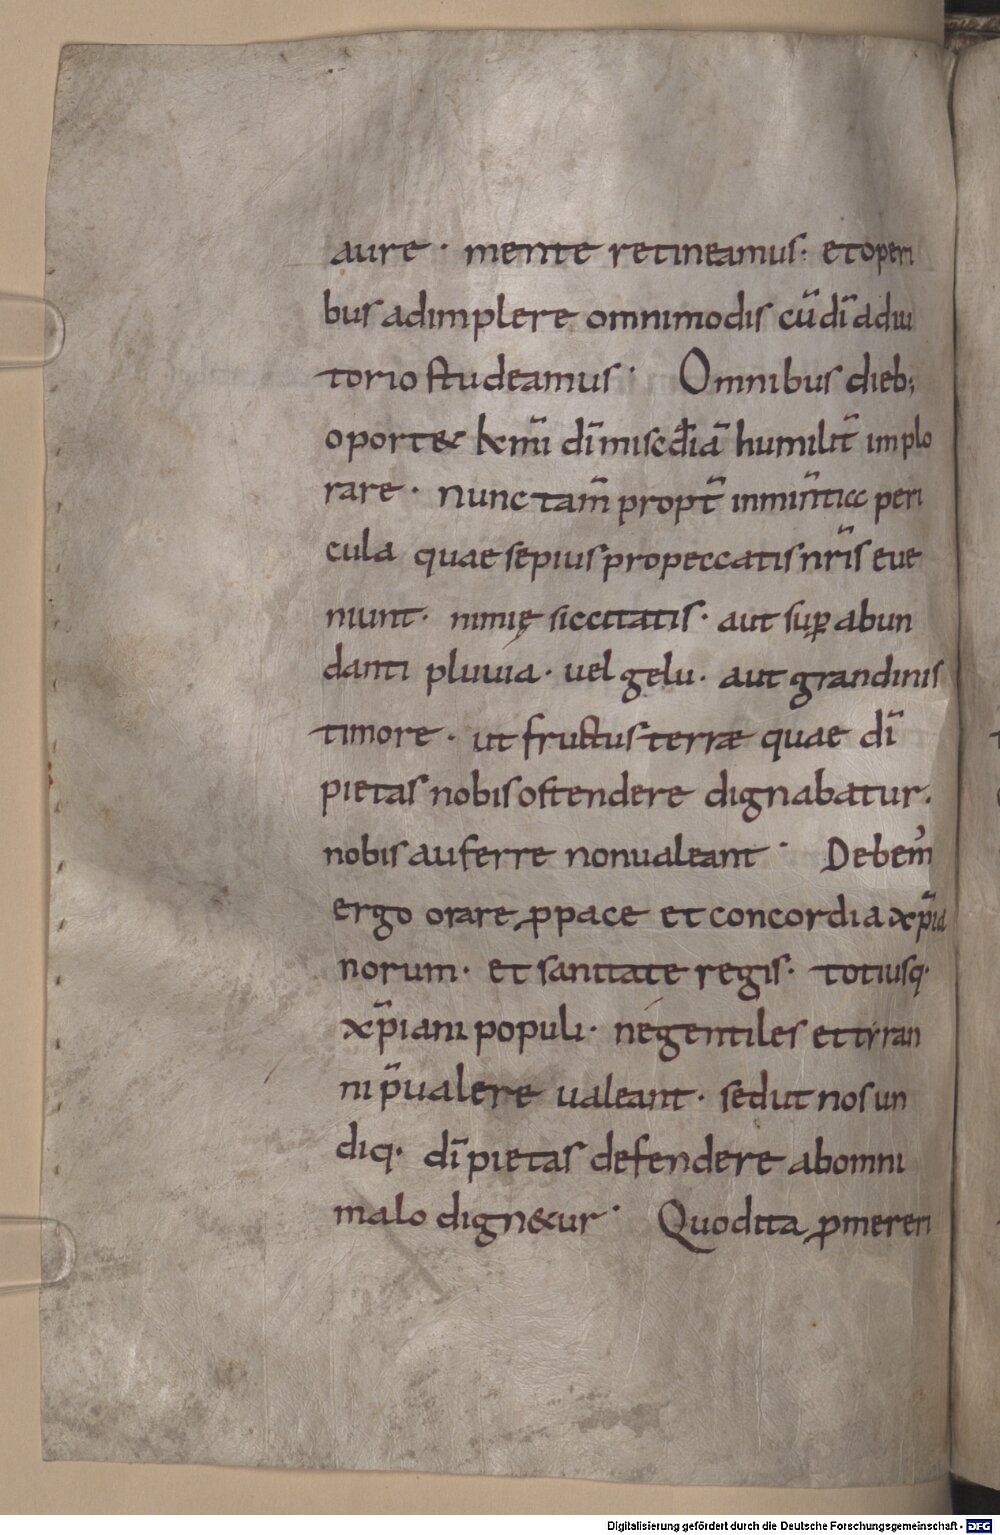 aure · mente retineamus· et operi
bus adimplere omnimodis cū dī adiu
torio studeamus · Omnibus dieb;
oport& kmī dī misc̄diā humilit̄ implo
rare · Nunc tam̄ propt̄ inmin̄tia peri
cula quae sepius pro peccatis nr̄is eue
niunt· nimię siccitatis· aut suꝑ abun
danti pluuia· uel gelu· aut grandinis
timore · ut fructus terræ quae dī
pietas nobis ostendere dignabatur·
nobis auferre nonualeant · Debem̓
ergo orare ꝓ pace et concordia xp̄ia
norum· et sanitate regis· totiusq·
xp̄iani populi· né gentiles et tyran
ni p̄ualere ualeant· sed ut nos un
diq· dī pietas defendere ab omni
malo dign&ur · Quod ita ꝓmereri
Digitalisierung gefördert durch die Deutsche Forschungsgemeinschaft - DFG